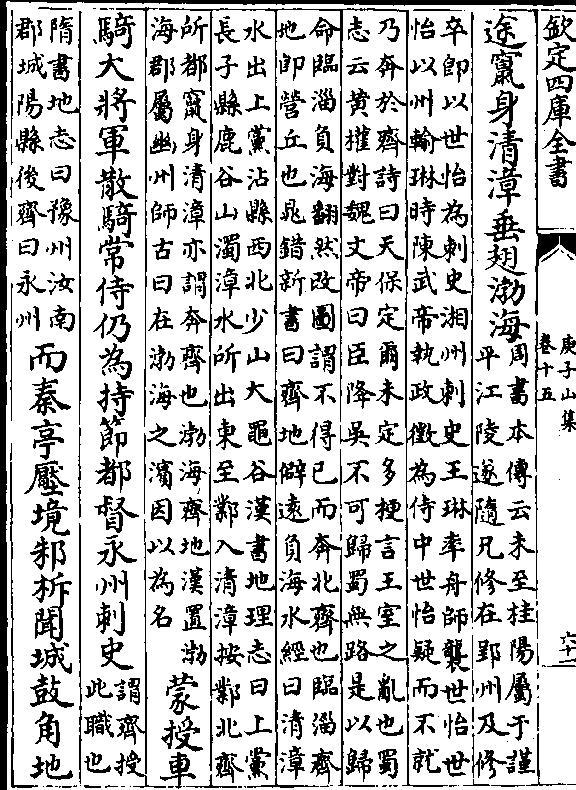 欽定四庫全書
庾子山集
卷十五
六十一
途竄身清漳垂翅渤海
周書本傳云未至桂陽屬于謹
平江陵遂隨兄修在郢州及修
卒即以世怡為刺史湘州刺史王琳率舟師襲世怡世
怡以州輸琳時陳武帝執政徵為侍中世怡疑而不就
乃奔於齊詩曰天保定爾未定多梗言王室之亂也蜀
志云黄權對魏文帝曰臣降吳不可歸蜀無路是以歸
命臨淄負海翻然改圖謂不得已而奔北齊也臨淄齊
地即營丘也鼂錯新書曰齊地僻遠負海水經曰清漳
水出上黨沾縣西北少山大黽谷漢書地理志曰上黨
長子縣鹿谷山濁漳水所出東至鄴入清漳按鄴北齊
所都竄身清漳亦謂奔齊也渤海齊地漢置渤
海郡屬幽州師古曰在渤海之濱因以為名
蒙授車
騎大將軍散騎常侍仍為持節都督永州刺史
謂齊授
此職也
隋書地志曰豫州汝南
郡城陽縣後齊曰永州
而秦亭壓境邾柝聞城鼓角地